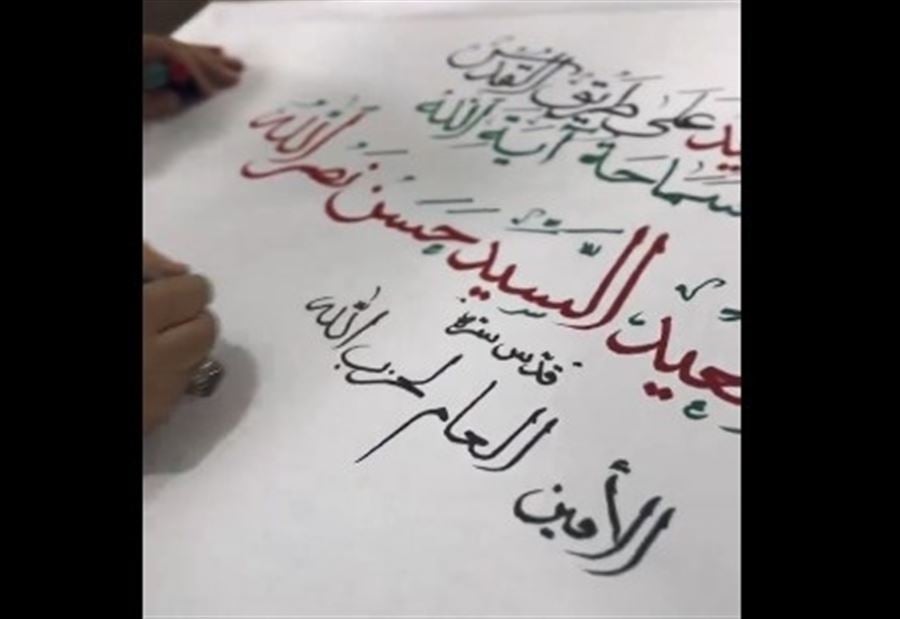 يد عَلى طَريق القُدس
سَماحَة آيَة الله
عيد السَّيّد حَسَن نصر الله
قدّس سرّه
الأمين العام لحزب الله